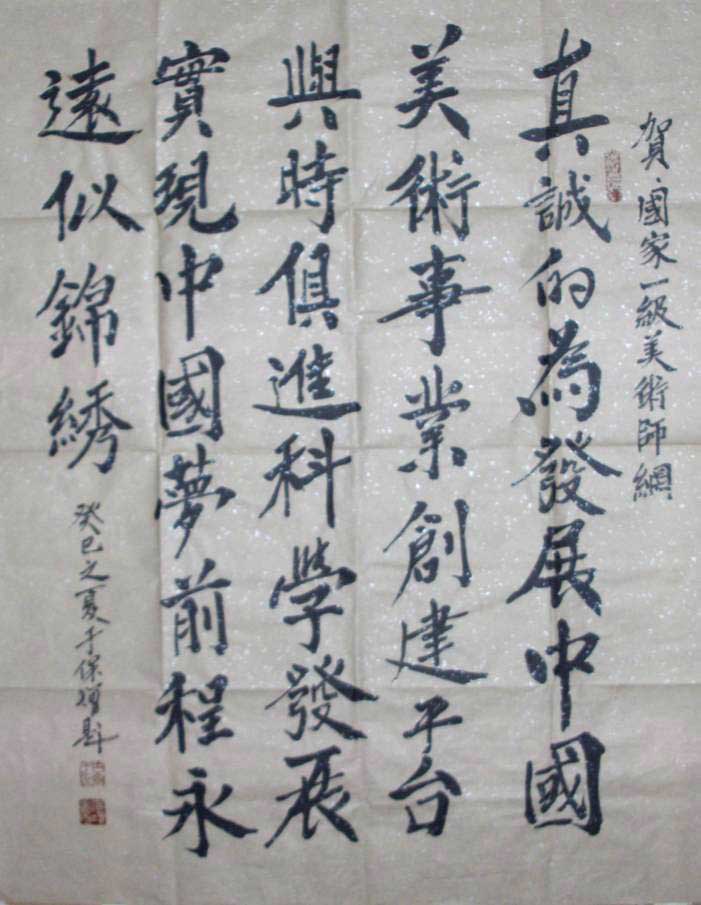 賀:國家一級美術師網
真誠的為發展中國
美術事業創建平台
與時俱進科學發展
實現中國夢前程永
遠似錦綉
癸巳之夏于保